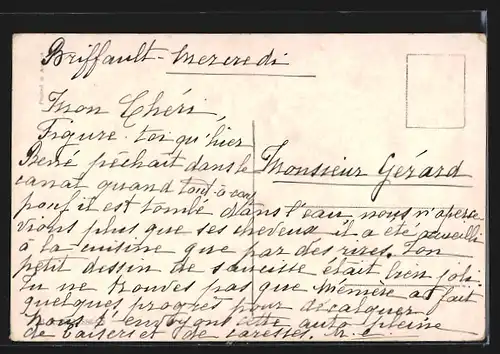 Briffault - Mercredi
Mon Chéri,
Figure-toi qu'hier
René pêchait dans le
canal quand tout à coup
pouf il est tombé dans l'eau nous n'aperce-
vions plus que ses cheveux il a été accueilli
à la cuisine que par des rires. Ton
petit dessin de saucisse était bien joli.
Tu ne trouves pas que mémère a fait
quelques progrès pour décalquer
nous t'envoyons cette auto pleine
de baisers et de caresses.
Monsieur Gérard